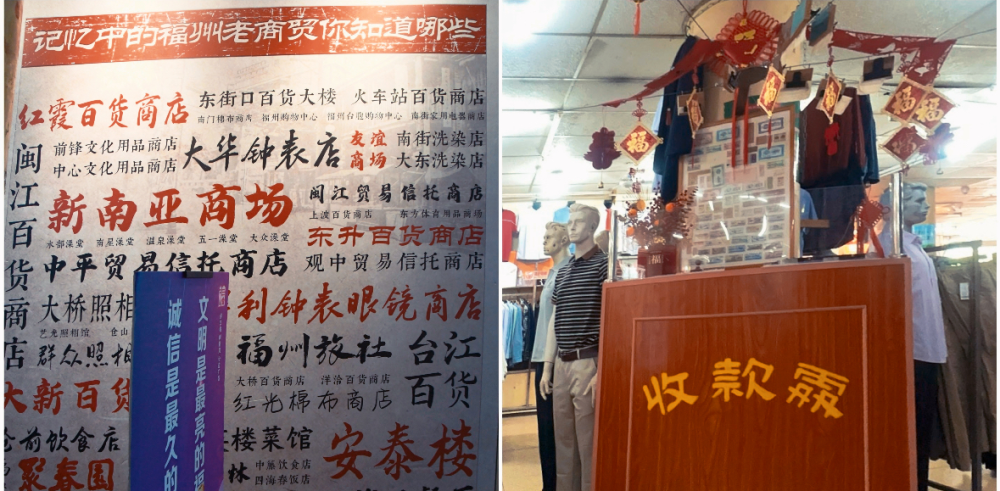 记忆中的福州老商贸你知道哪些
红霞百货商店
东街口百货大楼 火车站百货商店
南门棉布商店 福州购物中心 福州台胞购物中心 南街家用电器商店
闽江百货商店
前锋文化用品商店
中心文化用品商店
大华钟表店
友谊商场
南街洗染店
大东洗染店
新南亚商场
闽江贸易信托商店
上渡百货商店 东方体育用品商场
水部澡堂 南星澡堂 温泉澡堂 五一澡堂 大众澡堂
东升百货商店
中平贸易信托商店
观中贸易信托商店
大桥照相
利钟表眼镜商店
艺光照相馆 仓山
群众照相
福州旅社
台江百货
大桥百货商店 洋洽百货商店
红光棉布商店
大新百货
前饮食店
楼菜馆
安泰楼
聚春园
林
中亭饮食店
四海春饭店
文明是最亮的福
诚信是最久的
福
福
福
福
收款